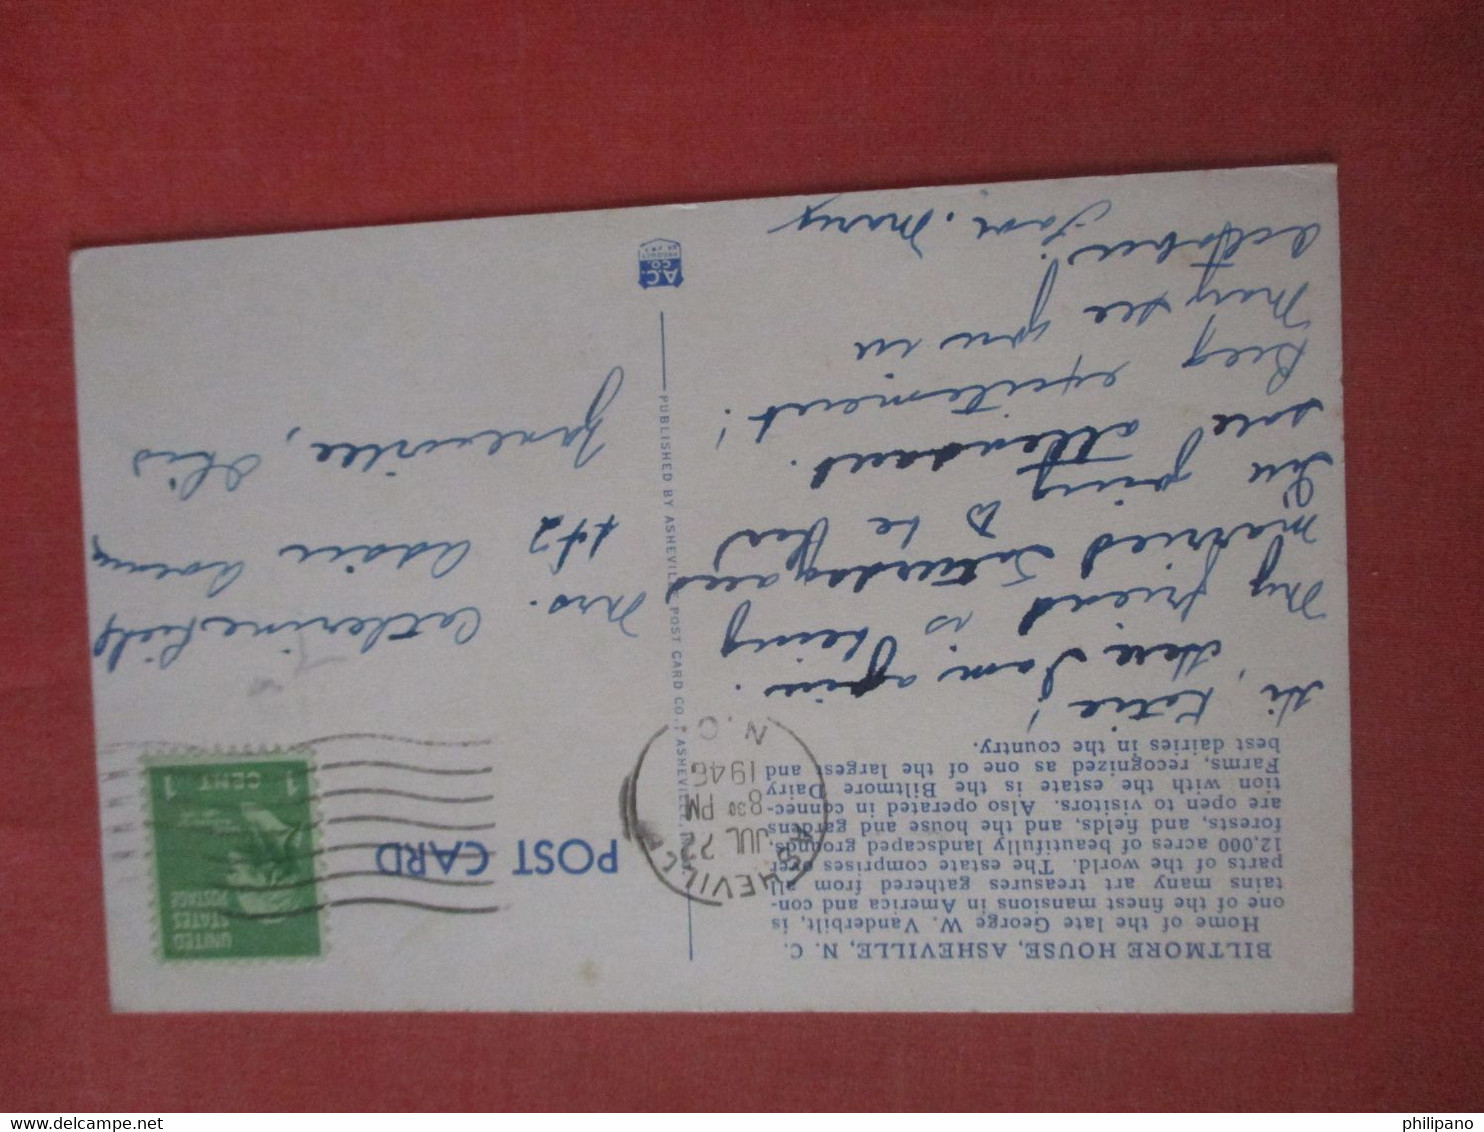 BILTMORE HOUSE, ASHEVILLE, N. C.
Home of the late George W. Vanderbilt, is
one of the finest mansions in America and con-
tains many art treasures gathered from all
parts of the world. The estate comprises over
12,000 acres of beautifully landscaped grounds,
forests, and fields, and the house and gardens
are open to visitors. Also operated in connec-
tion with the estate is the Biltmore Dairy
Farms, recognized as one of the largest and
best dairies in the country.
Hi, Katie!
Here I am again.
My friend is being
married Saturday and
I'm going to be her
sole attendant.
Big excitement!
May see you in
October.
Love. Mary
PUBLISHED BY ASHEVILLE POST CARD CO., ASHEVILLE, N. C.
A.C.
CO.
POST CARD
ASHEVILLE
JUL 22
8 30 PM
1946
N.C.
UNITED
STATES
POSTAGE
1 CENT 1
Mrs. Catherine Field
#2 Adair Avenue
Zanesville, Ohio
philipano
delcampe.net